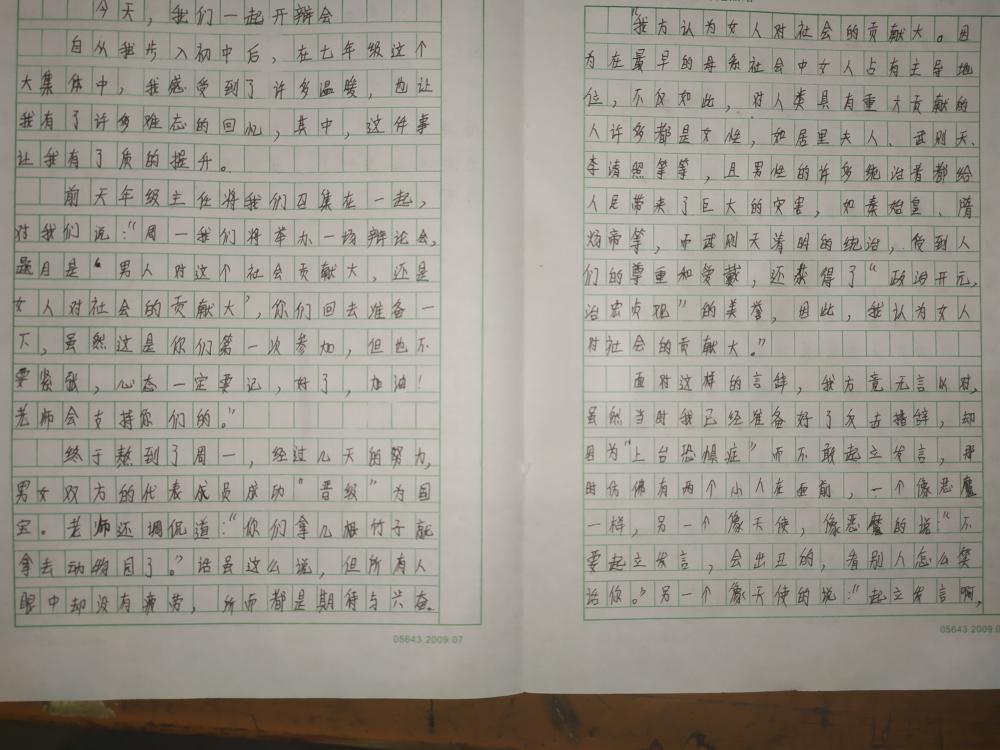 今天，我们一起开辩会
自从我步入初中后，在七年级这个
大集体中，我感受到了许多温暖，也让
我有了许多难忘的回忆，其中，这件事
让我有了质的提升。
前天年级主任将我们召集在一起，
对我们说："周一我们将举办一场辩论会，
题目是"男人对这个社会贡献大，还是
女人对社会的贡献大"，你们回去准备一
下，虽然这是你们第一次参加，但也不
要紧张，心态一定要记，好了，加油！
老师会支持你们的。"
终于熬到了周一，经过几天的努力，
男女双方的代表成员成功"晋级"为国
宝。老师还调侃道："你们拿几根竹子就
拿去动物园了。"话虽这么说，但所有人
眼中却没有疲劳，所而都是期待与兴奋。
05643.2009.07
"我方认为女人对社会的贡献大。因
为在最早的母系社会中女人占有主导地
位，不仅如此，对人类具有重大贡献的
人许多都是女性，如居里夫人、武则天、
李清照等等，且男性的许多统治者都给
人民带来了巨大的灾害，如秦始皇、隋
炀帝等，而武则天清明的统治，受到人
们的尊重和爱戴，还获得了"政治开元，
治宏贞观"的美誉，因此，我认为女人
对社会的贡献大。"
面对这样的言辞，我方竟无言以对，
虽然当时我已经准备好了反击措辞，却
因为"上台恐惧症"而不敢起立发言，那
时仿佛有两个小人在面前，一个像恶魔
一样，另一个像天使，像恶魔的说："不
要起立发言，会出丑的，看别人怎么笑
话你。"另一个像天使的说："起立发言啊，
05643.2009.0